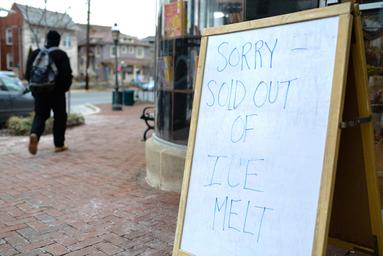 SORRY -
SOLD OUT
OF
ICE
MELT